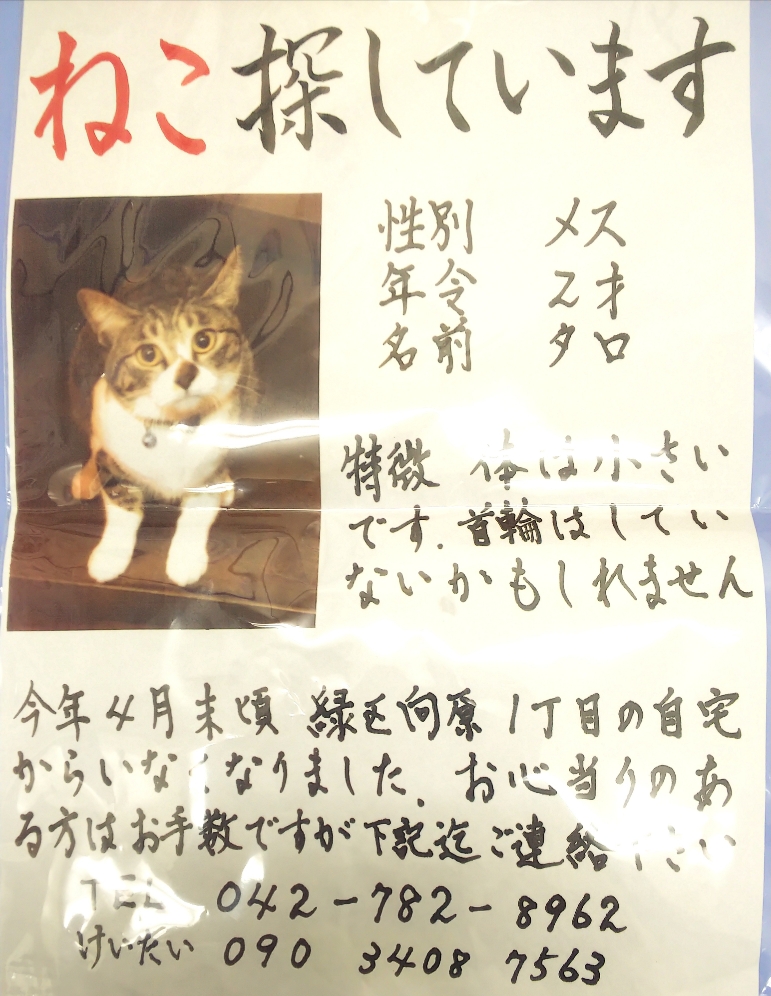 ねこ探しています
性別 メス
年令 2才
名前 タロ
特徴 体は小さい
です.首輪はしてい
ないかもしれません
今年4月末頃 緑区向原1丁目の自宅
からいなくなりました.お心当りのあ
る方はお手数ですが下記迄ご連絡下さい
TEL 042-782-8962
けいたい 090 3408 7563